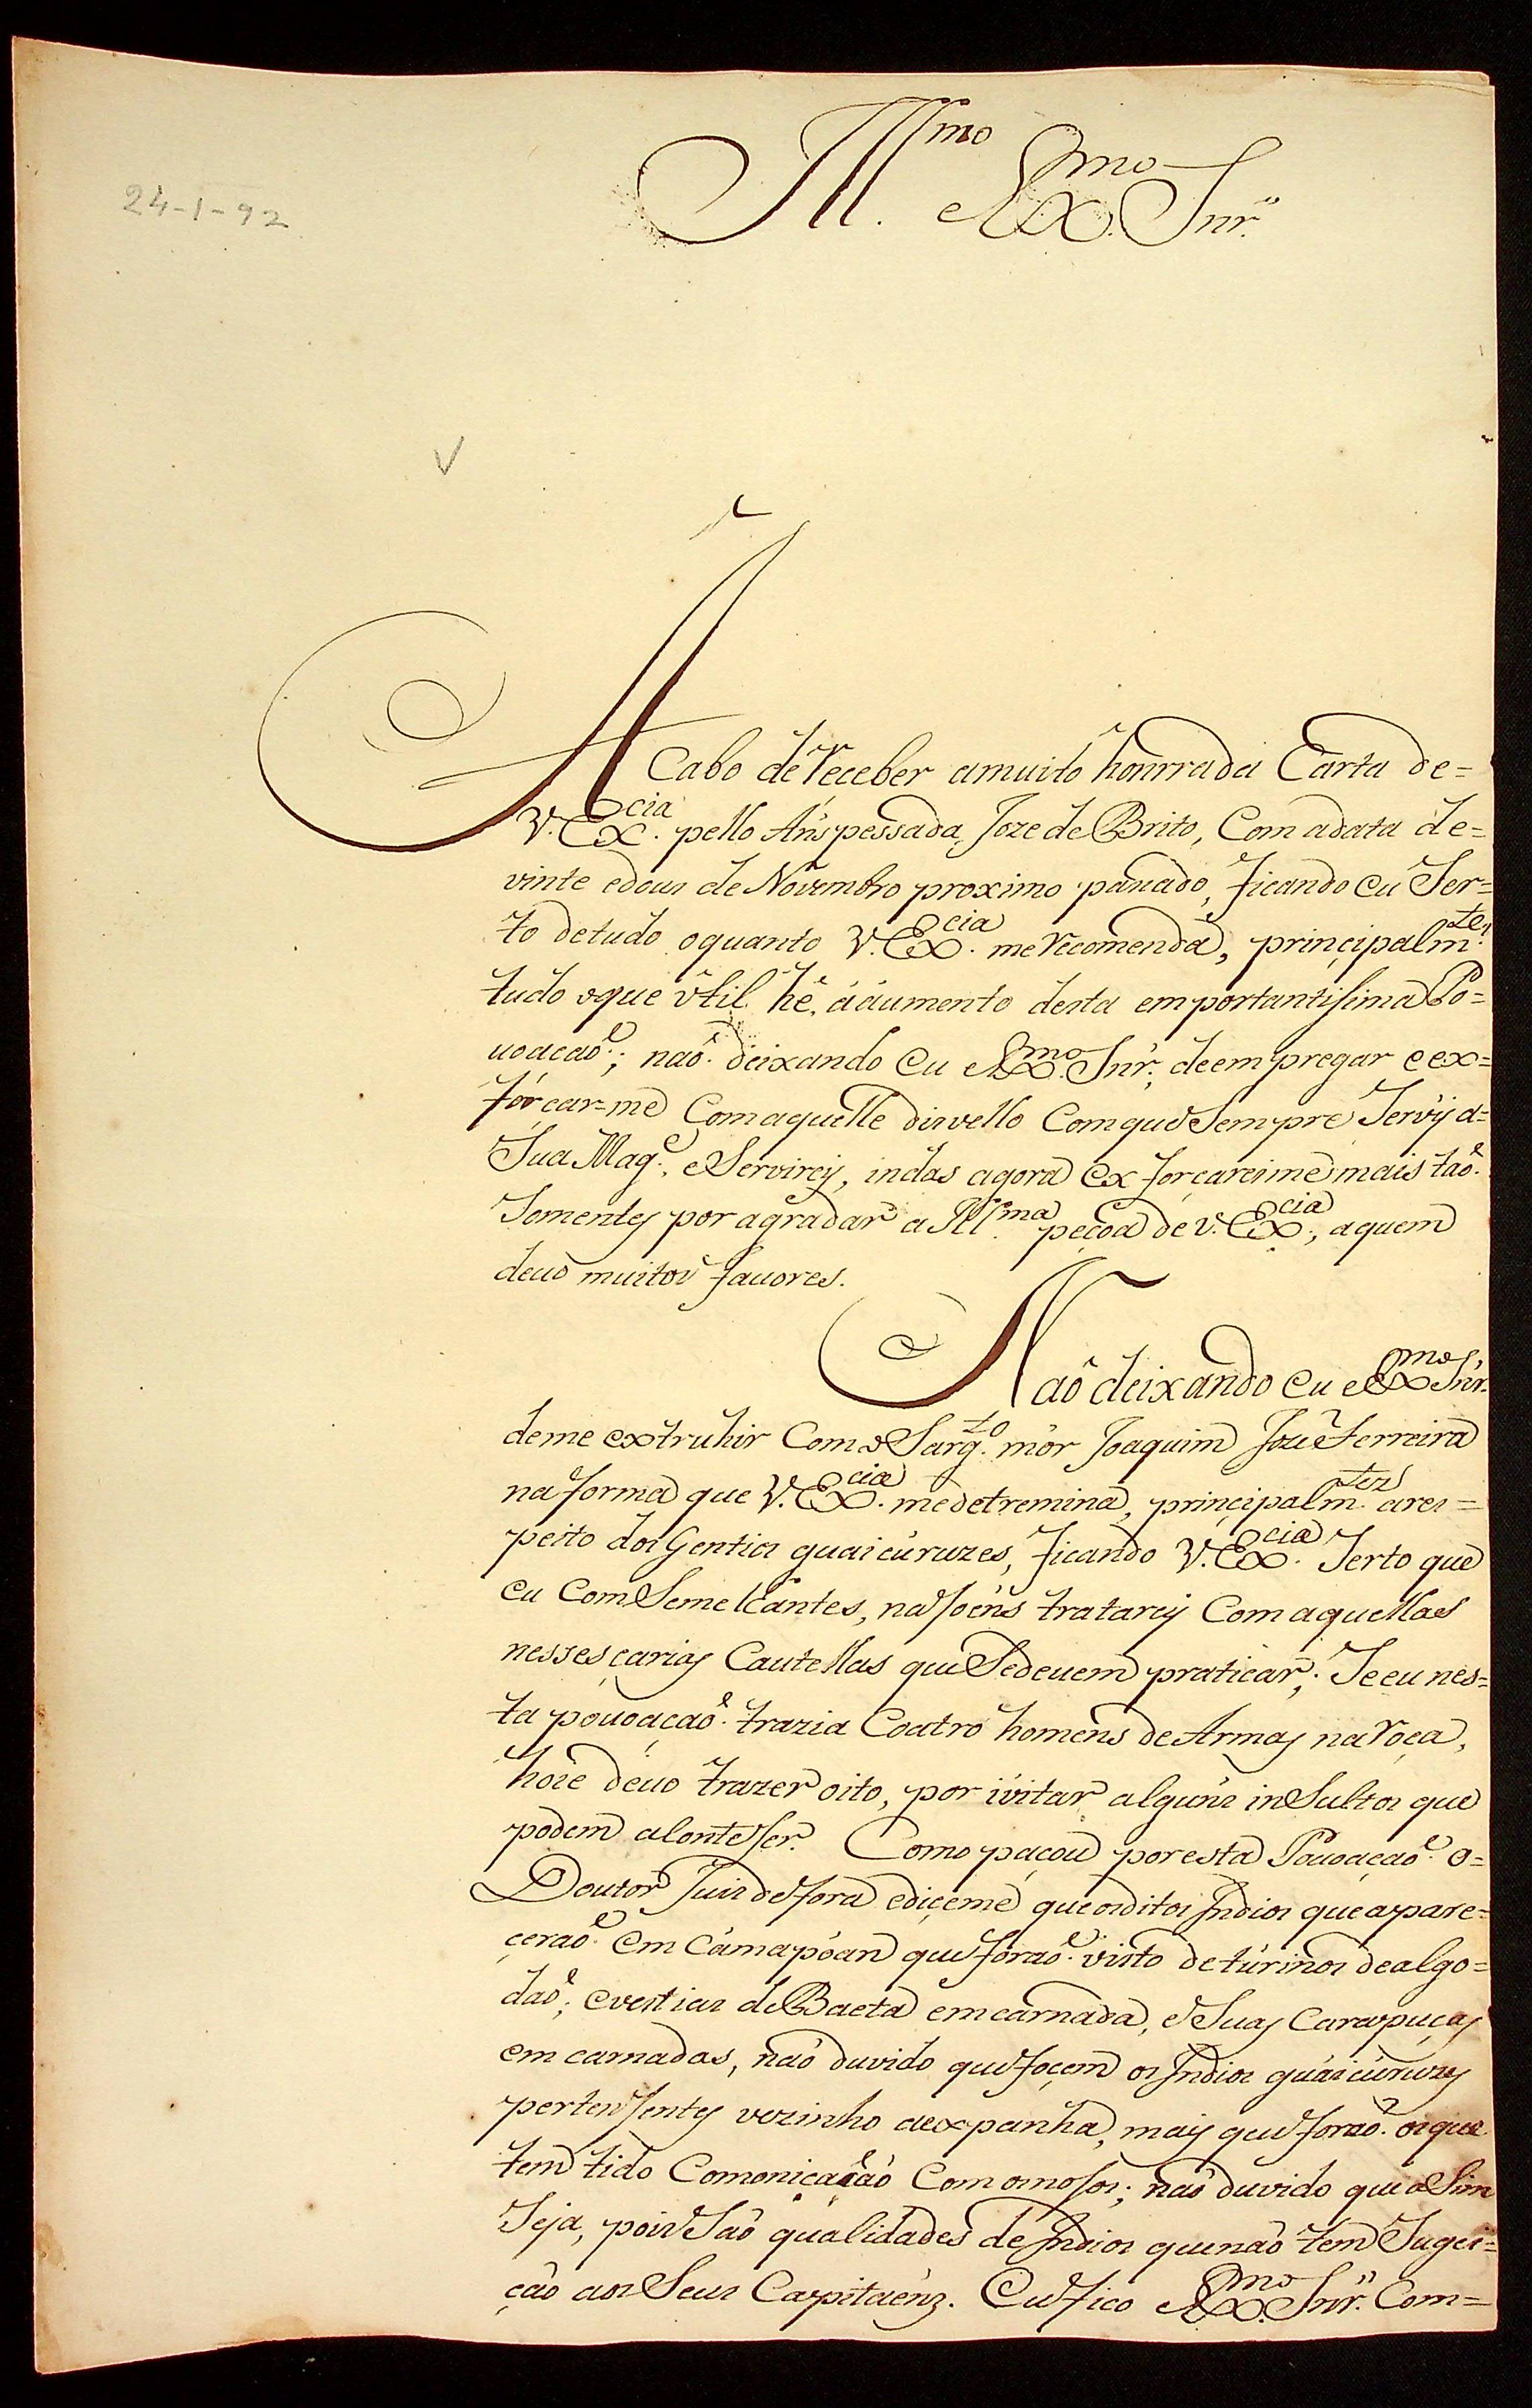 24-1-92
Ill.mo Ex.mo Snr.
Acabo de receber amuito honrrada Carta de=
V. Ex.cia pello Anspessada Joze de Brito, Com adata de=
vinte edous de Novembro proximo passado, ficando eu Ser=
to detudo oquanto V. Ex.cia me recomenda, principalm.te
tudo oque util hé, áaumento desta emportantisima Po=
uoacaõ; naõ deixando eu Ex.mo Snr. deempregar eex=
forcar=me Comaquelle disvello Comque Sempre Servÿ a=
Sua Mag.e, eServirey, indas agora exforçareime mais taõ
Somentes por agradar a Ill.ma peçoa de V. Ex.cia, aquem
deuo muitos fauores.
Naõ deixando eu Ex.mo Snr.
deme extruhir Como Sarg.to mór Joaquim Joze Ferreira
naforma que V. Ex.cia medetremina, principalm.te ares=
peito dos Gentios guaicuruzes, ficando V. Ex.cia Serto que
eu Com Semelhantes, nasoéns tratarey Comaquellas
nessesçarias Cautellas que Sedeuem praticar; Seeu nes=
ta pouoaçaõ trazia Coatro homens de Armas naroça,
hoie deuo trazer oito, por ivitar alguns inSultos que
podem aContesser. Como paçou poresta Pouoaçaõ o=
Doutor Juis defora ediçeme queosditos Indios queapare=
çeraõ em Camapoan que foraõ visto deturinos dealgo=
daõ; evestias de Baeta emcarnada, e Suas Carapuças
emcarnadas, naõ duvido que foçem os Indios guaicuruzes
pertensentes vezinho aexpanha, mais que foraõ osque
tem tido Comonicaçaõ Comosnosos; naõ duvido que aSim
Seja, pois Saõ qualidades de Indios quenaõ tem Sugei=
çaõ aos Seus Capitaens. Eu fico Ex.mo Snr. Com=